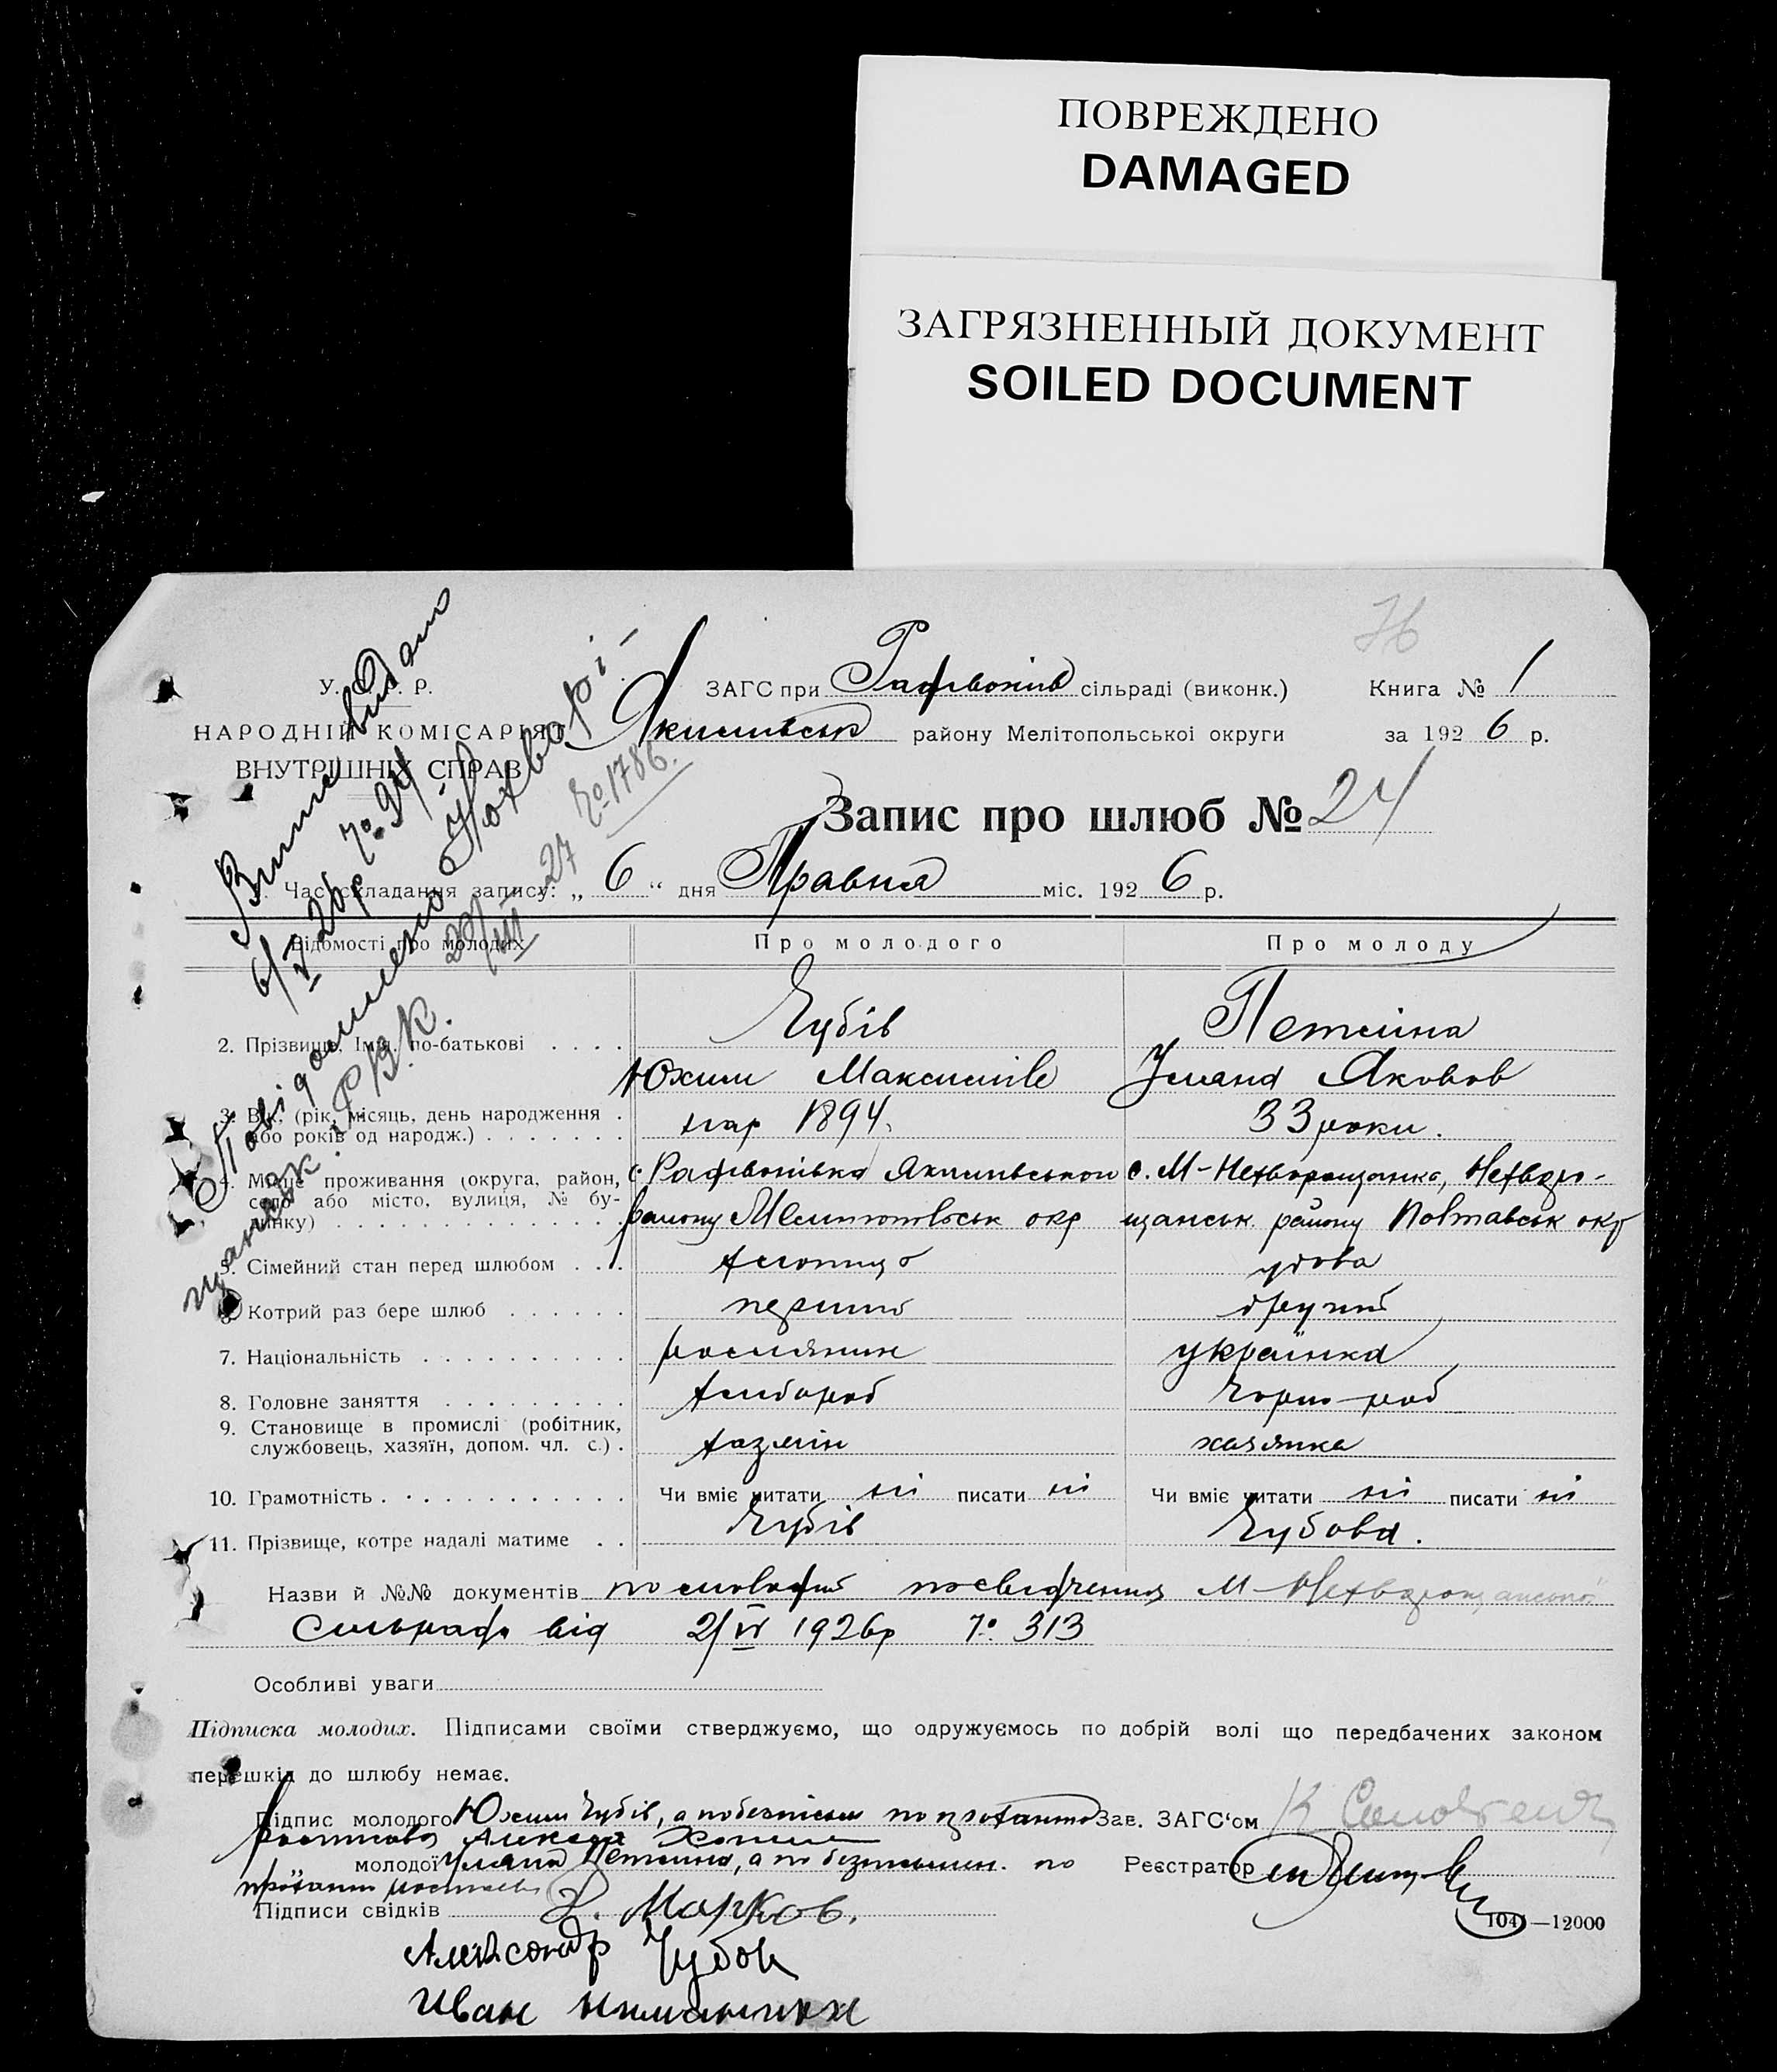 ПОВРЕЖДЕНО
DAMAGED
ЗАГРЯЗНЕННЫЙ ДОКУМЕНТ
SOILED DOCUMENT
У. Р.
НАРОДНІЙ КОМІСАРІЯТ
ВНУТРІШНІХ СПРАВ
ЗАГС при сільраді (виконк.) Книга № 1
Якимівськ району Мелітопольської округи за 192 6 р.
видано
6/V 26р № 24
Повідомлено Нохворощанськ. РВК.
29/III 27 № 1786.
Запис про шлюб № 24
Час складання запису: „ 6 “ дня Травня міс. 192 6 р.
Відомості про молодих Про молодого Про молоду
2. Прізвище, Імя, по-батькові Чубів
Юхим Максимів Уляна Яковов
3. Вік, (рік, місяць, день народження або років од народж.) нар 1894. 33 роки.
4. Місце проживання (округа, район, с. М-Нехворощанка, Нехворо-
село або місто, вулиця, № бу-
динку) району Мелитопольськ окр щанськ району Полтавськ окр
5. Сімейний стан перед шлюбом удова
6. Котрий раз бере шлюб перший другий
7. Національність росіянин українка
8. Головне заняття хлібороб
9. Становище в промислі (робітник,
службовець, хазяїн, допом. чл. с.) хазяїн хазяйка
10. Грамотність Чи вміє читати ні писати ні Чи вміє читати ні писати ні
11. Прізвище, котре надалі матиме Чубів Чубова.
Назви й №№ документів посвідчення М-Нехворощанської
Сильради від 2/IV 1926р № 313
Особливі уваги
Підписка молодих. Підписами своїми стверджуємо, що одружуємось по добрій волі що передбачених законом
перешкід до шлюбу немає.
Підпис молодого Юхим Чубів, а по Зав. ЗАГС‘ом
„ молодої Уляна Реєстратор
Підписи свідків Марков.
1041—12000
Александр Чубов
Иван